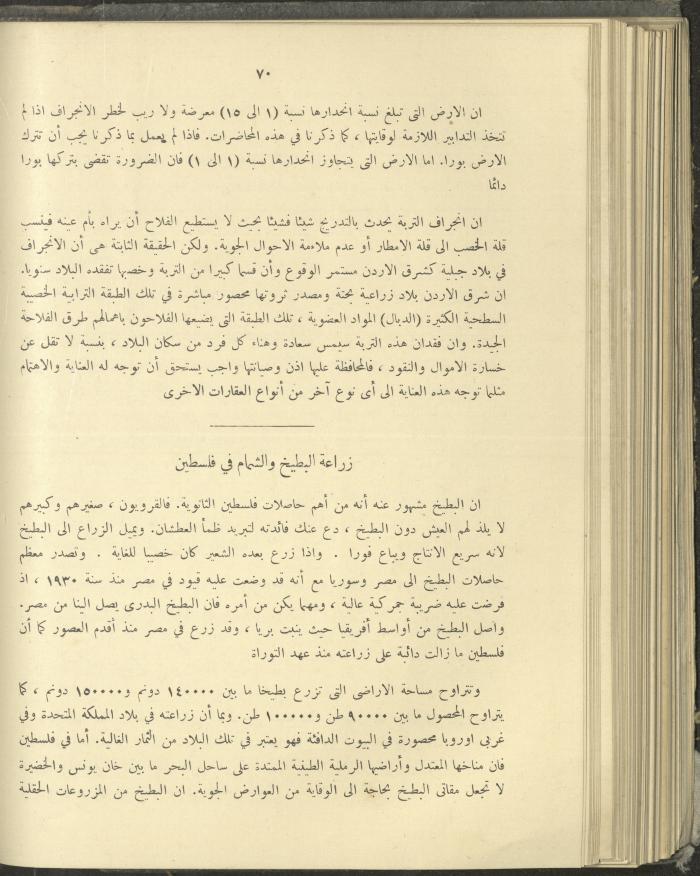 ٧٠
ان الارض التى تبلغ نسبة انحدارها نسبة (١ الى ١٥) معرضة ولا ريب لخطر الانجراف اذا لم
تتخذ التدابير اللازمة لوقايتها ، كما ذكرنا في هذه المحاضرات. فاذا لم يعمل بما ذكرنا يجب أن تترك
الارض بورا. اما الارض التى يتجاوز انحدارها نسبة (١ الى ١) فان الضرورة تقضى بتركها بورا
دائما
ان انجراف التربة يحدث بالتدريج شيئا فشيئا بحيث لا يستطيع الفلاح أن يراه بأم عينه فينسب
قلة الخصب الى قلة الامطار أو عدم ملاءمة الاحوال الجوية. ولكن الحقيقة الثابتة هى أن الانجراف
في بلاد جبلية كشرق الاردن مستمر الوقوع وأن قسما كبيرا من التربة وخصبها تفقده البلاد سنويا.
ان شرق الاردن بلاد زراعية بحتة ومصدر ثروتها محصور مباشرة في تلك الطبقة الترابية الخصيبة
السطحية الكثيرة (الدبال) المواد العضوية ، تلك الطبقة التى يضيعها الفلاحون باهمالهم طرق الفلاحة
الجيدة. وان فقدان هذه التربة سيمس سعادة وهناء كل فرد من سكان البلاد ، بنسبة لا تقل عن
خسارة الاموال والنقود ، فالمحافظة عليها اذن وصيانتها واجب يستحق أن توجه له العناية والاهتمام
مثلما توجه هذه العناية الى أى نوع آخر من أنواع العقارات الاخرى
زراعة البطيخ والشمام في فلسطين
ان البطيخ مشهور عنه أنه من أهم حاصلات فلسطين الثانوية. فالقرويون ، صغيرهم وكبيرهم
لا يلذ لهم العيش دون البطيخ ، دع عنك فائدته لتبريد ظمأ العطشان. ويميل الزراع الى البطيخ
لانه سريع الانتاج ويباع فورا . واذا زرع بعده الشعير كان خصيبا للغاية . وتصدر معظم
حاصلات البطيخ الى مصر وسوريا مع أنه قد وضعت عليه قيود في مصر منذ سنة ١٩٣٠ ، اذ
فرضت عليه ضريبة جمركية عالية ، ومهما يكن من أمره فان البطيخ البدرى يصل الينا من مصر.
واصل البطيخ من أواسط أفريقيا حيث ينبت بريا ، وقد زرع في مصر منذ أقدم العصور كما أن
فلسطين ما زالت دائبة على زراعته منذ عهد التوراة
وتتراوح مساحة الاراضى التى تزرع بطيخا ما بين ١٤٠٠٠٠ دونم و١٥٠٠٠٠ دونم ، كما
يتراوح المحصول ما بين ٩٠٠٠٠ طن و١٠٠٠٠٠ طن. وبما أن زراعته في بلاد المملكة المتحدة وفي
غربى اوروبا محصورة في البيوت الدافئة فهو يعتبر في تلك البلاد من الثمار الغالية. أما في فلسطين
فان مناخها المعتدل وأراضيها الرملية الطينية الممتدة على ساحل البحر ما بين خان يونس والخضيرة
لا تجعل مقاثى البطيخ بحاجة الى الوقاية من العوارض الجوية. ان البطيخ من المزروعات الحقلية